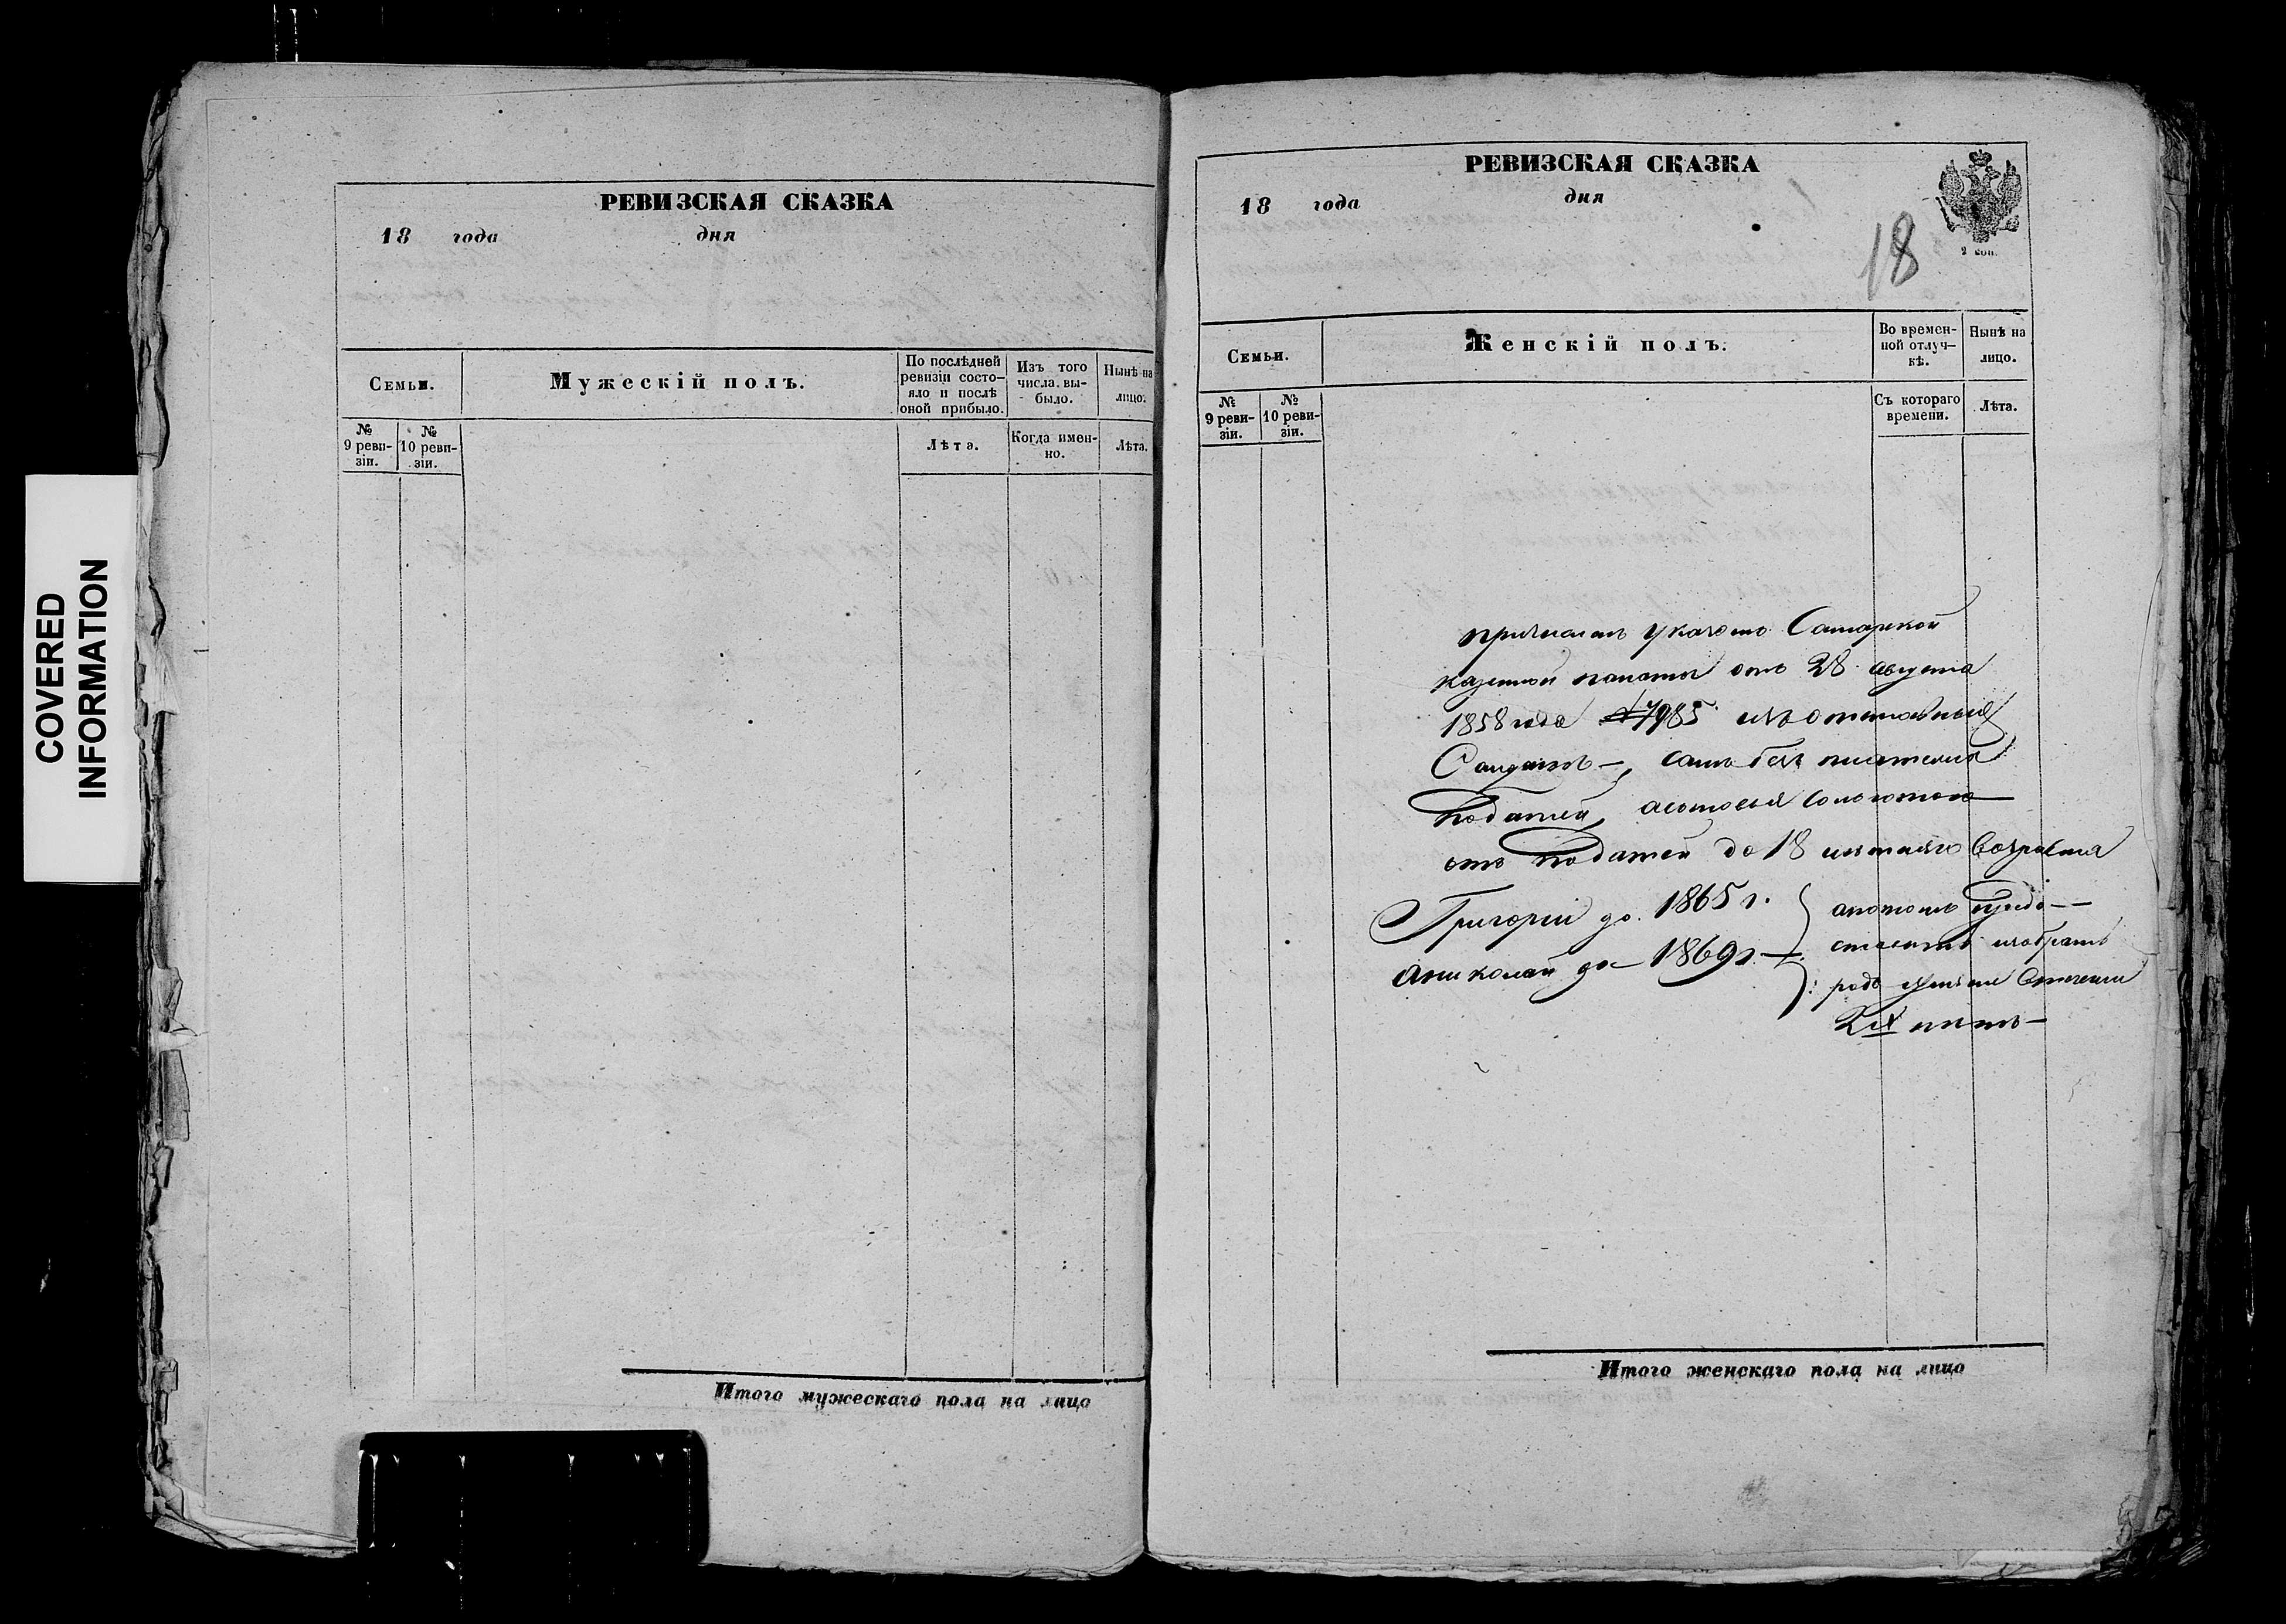 COVERED
INFORMATION
РЕВИЗСКАЯ СКАЗКА
18 года дня
Семьи.
Мужескій полъ.
По послѣдней
ревизіи состо-
яло и послѣ
оной прибыло.
Изъ того
числа вы-
было.
Нынѣ на
лицо.
№
9 реви-
зіи.
№
10 реви-
зіи.
Лѣта.
Когда имен-
но.
Лѣта.
Итого мужескаго пола на лицо
РЕВИЗСКАЯ СКАЗКА
18 года дня
2 коп.
18
Семьи.
Женскій полъ.
Во времен-
ной отлуч-
кѣ.
Нынѣ на
лицо.
№
9 реви-
зіи.
№
10 реви-
зіи.
Съ котораго
времени.
Лѣта.
причисленъ указомъ Самарской
казенной палаты отъ 28 августа
1858 года №7985 изъ отставныхъ
Солдатъ —, самъ безъ платежа
податей,
отъ податей до 18 лѣтняго возраста
Григорій до 1865 г.
а Николай до 1869 г. —
а потомъ
избрать
родъ жизни
лѣтъ —
Итого женскаго пола на лицо